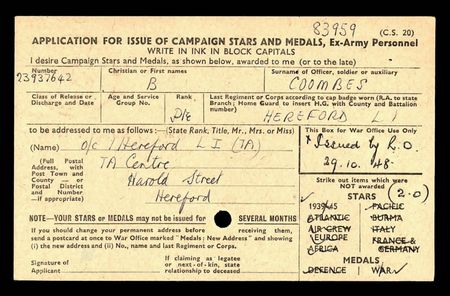 83959
(C.S. 20)
APPLICATION FOR ISSUE OF CAMPAIGN STARS AND MEDALS, Ex-Army Personnel
WRITE IN INK IN BLOCK CAPITALS
I desire Campaign Stars and Medals, as shown below, awarded to me (or to the late)
Number Christian or First names Surname of Officer, soldier or auxiliary
23937642 B COOMBES
Class of Release or Discharge and Date
Age and Service Group No.
Rank
Pte
Last Regiment or Corps according to cap badge worn (R.A. to state Branch; Home Guard to insert H.G. with County and Battalion number)
HEREFORD L I
to be addressed to me as follows :— (State Rank, Title, Mr., Mrs. or Miss)
o/c 1 Hereford L I (TA)
(Full Postal Address, with Post Town and County — or Postal District and Number if appropriate)
TA Centre
Harold Street
Hereford
This Box for War Office Use Only
Issued by R.O.
29.10.48.
Strike out items which were NOT awarded
(2.0)
STARS
1939/45 PACIFIC
ATLANTIC BURMA
AIR CREW EUROPE ITALY
AFRICA FRANCE & GERMANY
MEDALS
DEFENCE WAR
NOTE—YOUR STARS or MEDALS may not be issued for SEVERAL MONTHS
If you should change your permanent address before receiving them, send a postcard at once to War Office marked "Medals: New Address" and showing (i) the new address (ii) No., name and last Regiment or Corps.
Signature of Applicant
If claiming as legatee or next-of-kin, state relationship to deceased